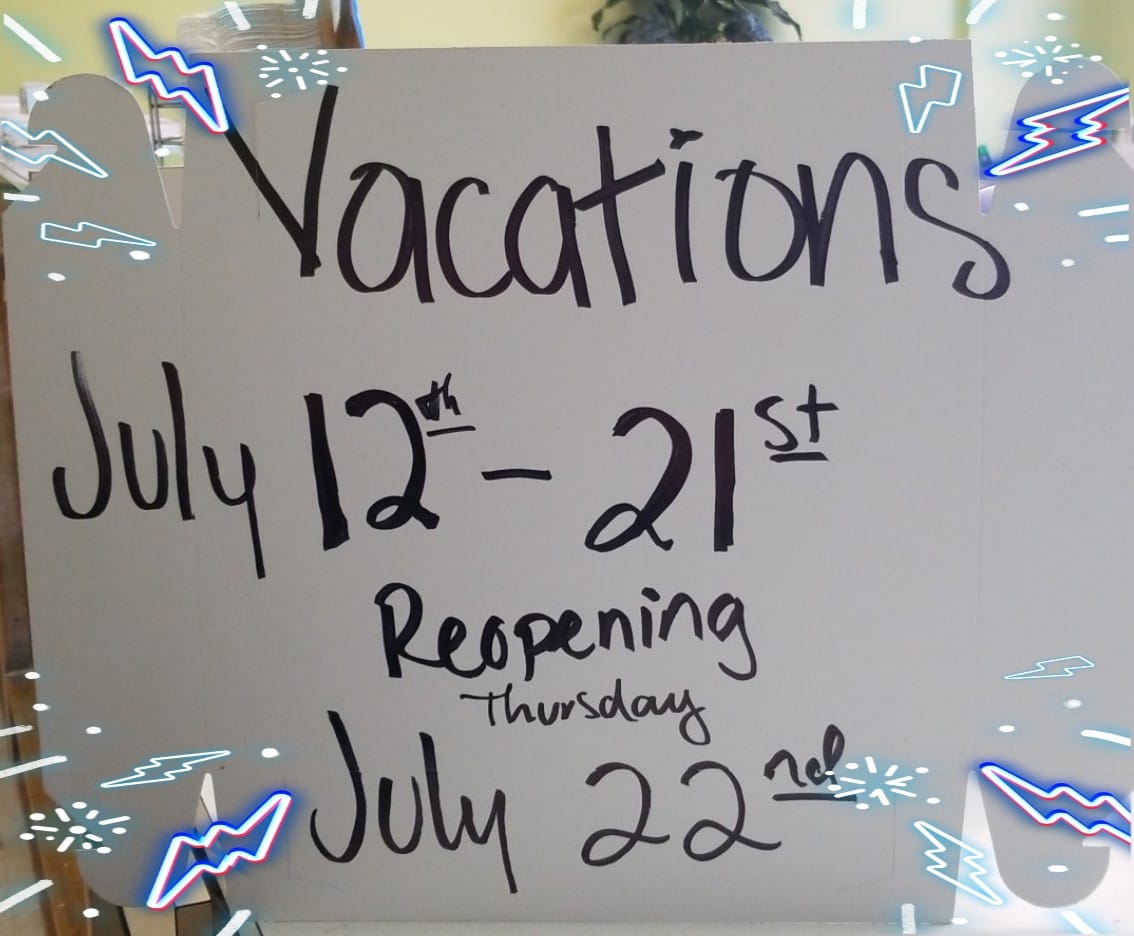 Vacations
July 12th - 21st
Reopening
Thursday
July 22nd